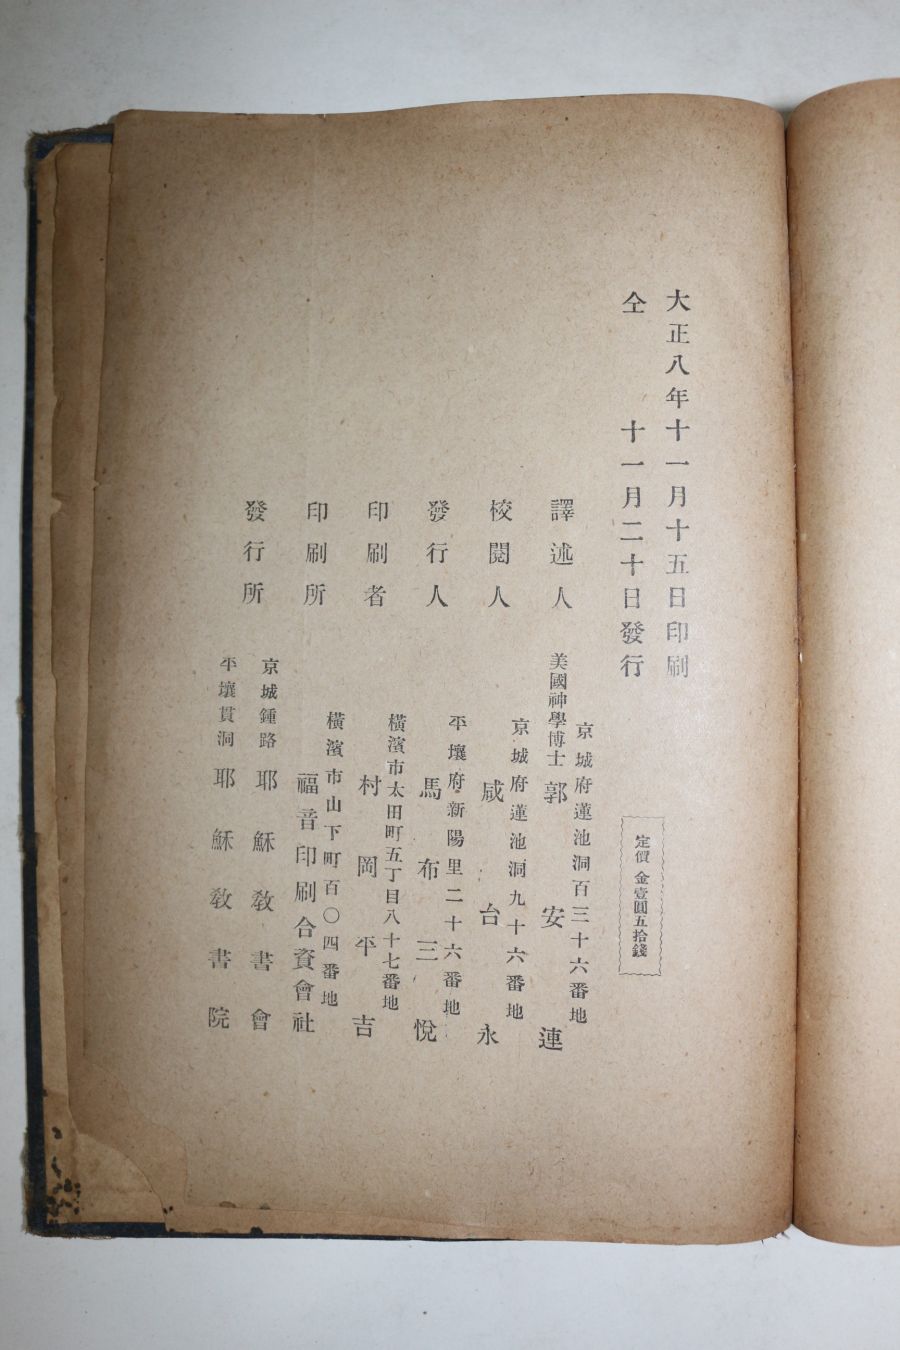 大正八年十一月十五日印刷
仝 十一月二十日發行
定價 金壹圓五拾錢
京城府蓮池洞百三十六番地
譯述人 美國神學博士 郭安連
京城府蓮池洞九十六番地
校閱人 咸台永
平壤府新陽里二十六番地
發行人 馬布三悅
橫濱市太田町五丁目八十七番地
印刷者 村岡平吉
橫濱市山下町百〇四番地
印刷所 福音印刷合資會社
發行所 京城鍾路 耶穌敎書會
平壤貫洞 耶穌敎書院